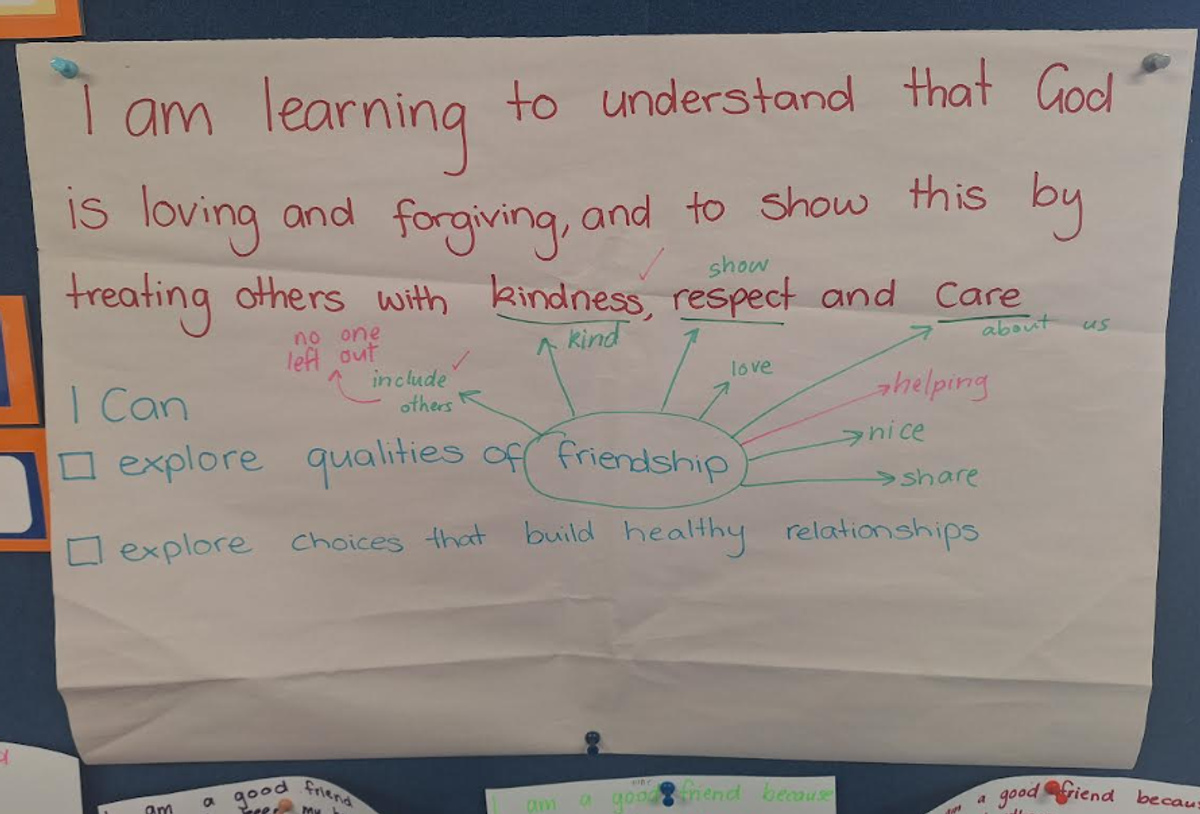 I am learning to understand that God
is loving and forgiving, and to show this by
show
treating others with kindness, respect and care
kind
about us
no one
left out
include
others
love
helping
nice
share
I Can
explore qualities of friendship
explore choices that build healthy relationships
am a good friend
my
I am a good friend because
a good friend becaus